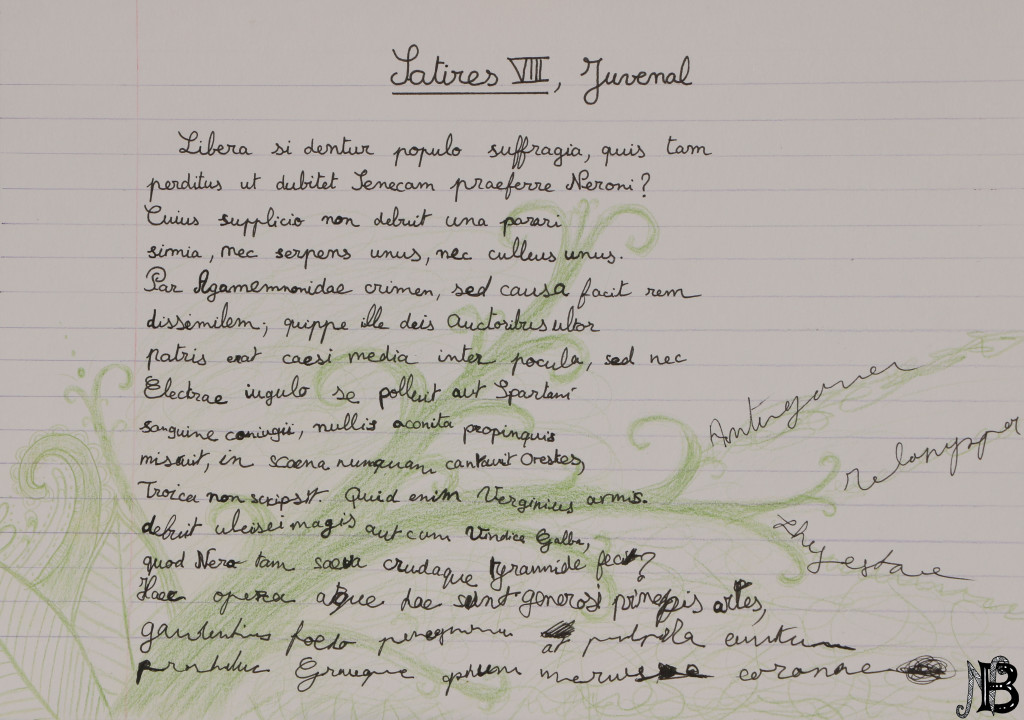 Satires VIII, Juvenal
Libera si dentur populo suffragia, quis tam
perditus ut dubitet Senecam praeferre Neroni?
Cuius supplicio non debuit una parari
simia, nec serpens unus, nec culleus unus.
Par Agamemnonidae crimen, sed causa facit rem
dissimilem; quippe ille deis auctoribus ultor
patris erat caesi media inter pocula, sed nec
Electrae iugulo se polluit aut Spartani
sanguine coniugii, nullis aconita propinquis
miscuit, in scaena nunquam cantavit Orestes,
Troica non scripsit. Quid enim Verginius armis.
debuit ulcisci magis aut cum Vindice Galba,
quod Nero tam saeva crudaque tyrannide fecit?
Haec opera atque hae sunt generosi principis artes,
gaudentis foedo
Graiaeque apium meruisse coronae
Thyestae
NB